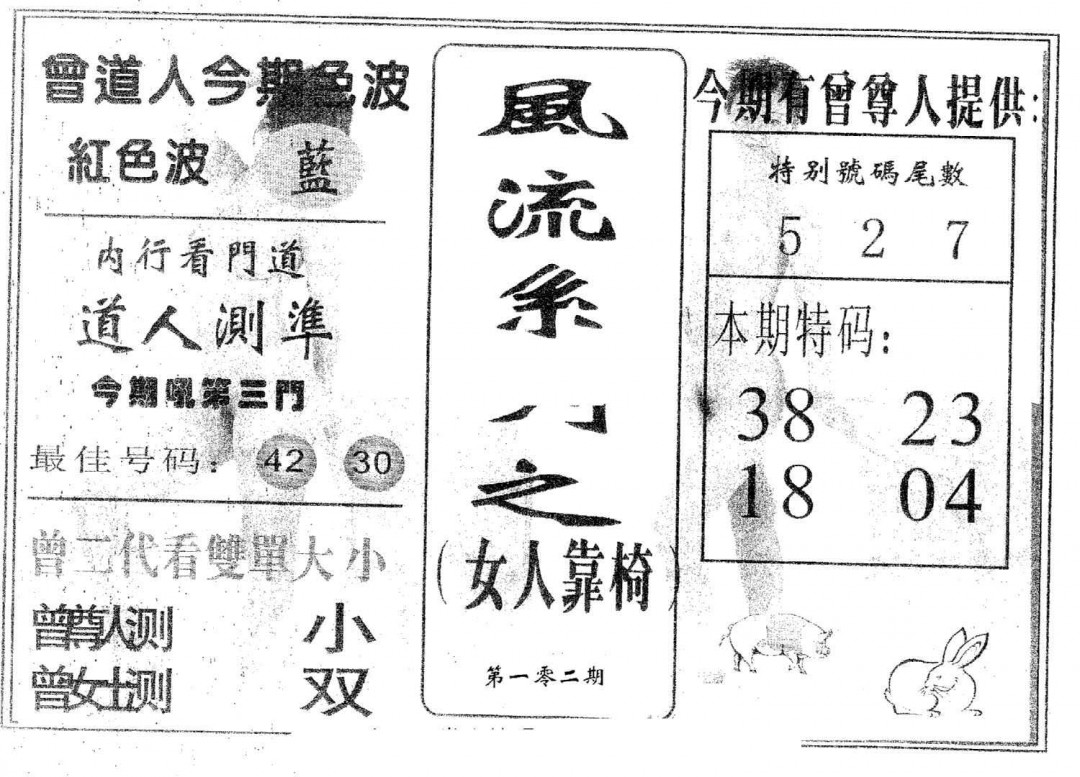 曾道人今期色波
紅色波 藍
内行看門道
道人測準
今期吼第三門
最佳号码: 42 30
曾二代看雙單大小
曾尊人测 小
曾女士测 双
風
流
系
之
(女人靠椅)
第一零二期
今期有曾尊人提供:
特别號碼尾數
5 2 7
本期特码:
38 23
18 04